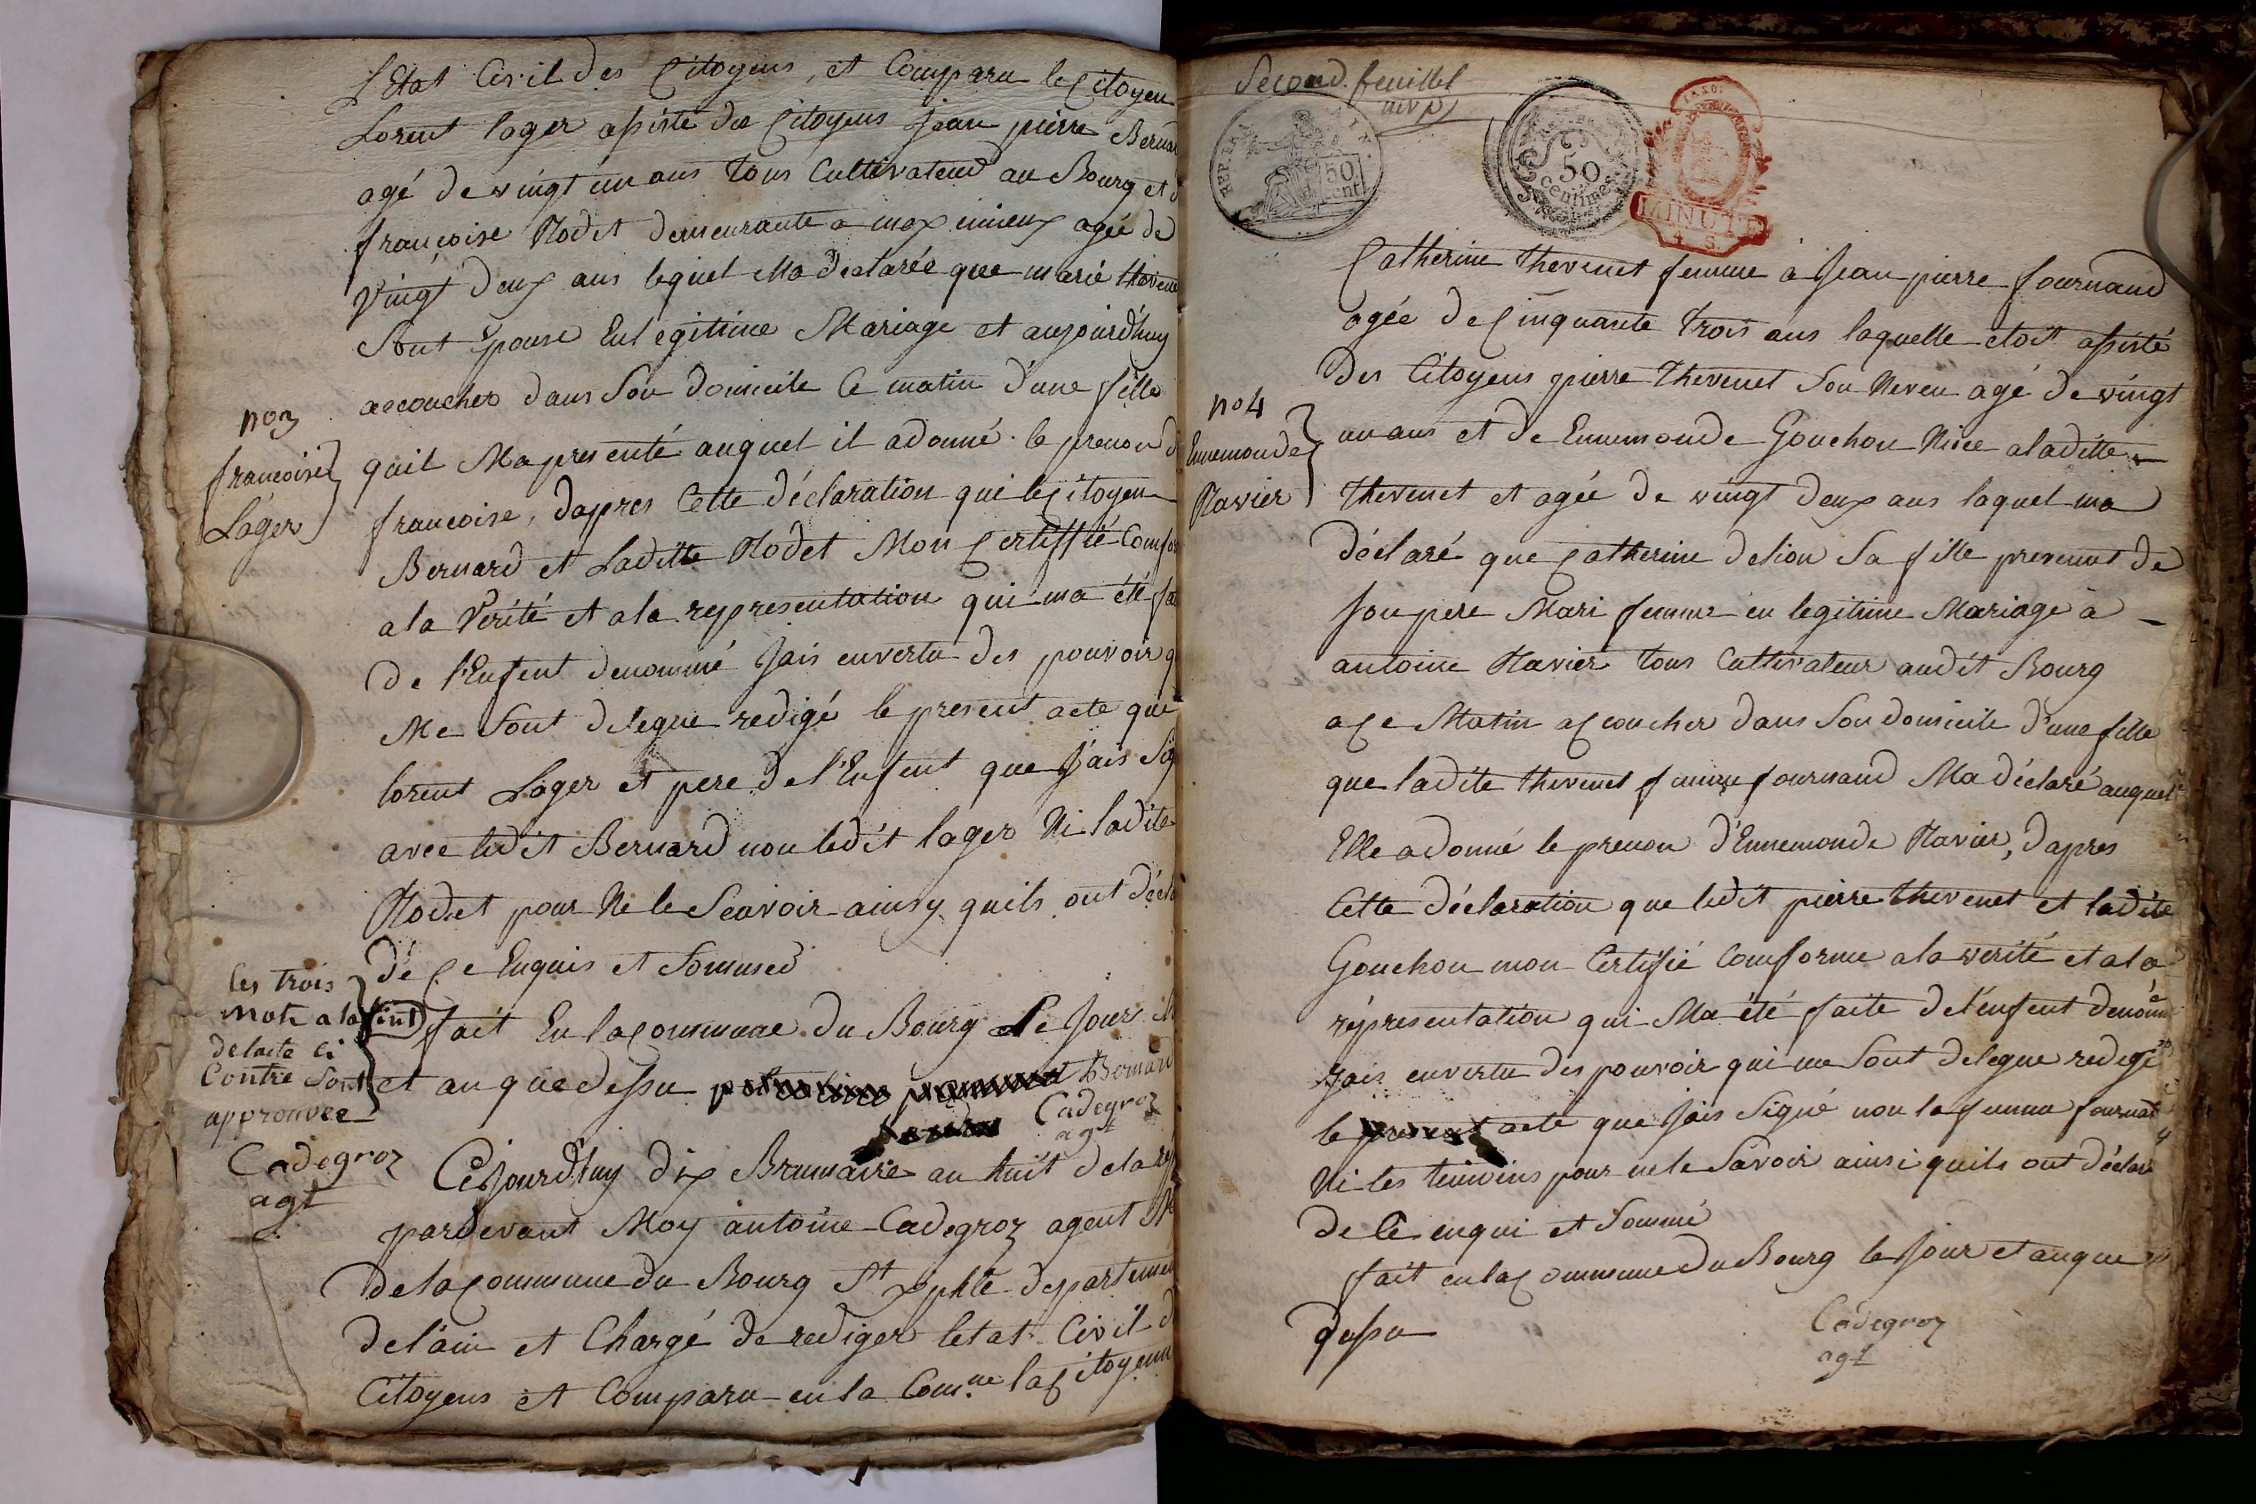 L'Etat Civil des Citoyens, et Comparu le Citoyen
Lorent lager assisté du Citoyens Jean pierre Bernar
agé de vingt un ans tous Cultivateur au Bourg et d
francoise Rodet demeurante a meximieux agée de
Vingt deux ans lequel Ma declarée que marie theven
Sont Epouse En legitime Mariage et aujourd'huy
accoucher dans Son domicile Ce matin d'une fille
no 3
francoise
Lager
quil Ma presenté auquel il adonné le prenon d
francoise, dapres Cette déclaration qui le Citoyen
Bernard et Laditte Rodet Mon Certiffié Comfor
a la Verité et a la representation qui ma été fai
de l'Enfent denommé Jais en vertu des pouvoir q
Me Sont delegue redigé le present acte que
lorent Lager et pere de l'Enfent que Jais Sig
avec ledit Bernard non ledit lager Ni ladite
Rodet pour Ne le Scavoir ainsy quils ont décla
dé Ce Enquis et Sommed
les trois
mots a la fint
de lacte ci
Contre sont
approuvee
Cadegroz
agt
fait En la Commune du Bourg Le Jour
et an que dessu Bernard
Cadegroz
agt
Cejourd'huy dix Brumaire an huit de la rep
pardevant Moy antoine Cadegroz agent
de la Commune du Bourg St xphle departemen
de l'ain et Chargé de rediger letat Civil d
Citoyens et Comparu en la Comne la Citoyenn
Second feuillet
50
cent
50
centimes
MINUTE
Catherine thevenet femme à Jean pierre fournand
agée de Cinquante trois ans laquelle etoit assisté
des Citoyens pierre thevenet Son Neveu agé de vingt
no 4
Ennemonde
Ravier
un ans et de Ennemonde Gouchon Niece a laditte
thevenet et agée de vingt deux ans laquel ma
déclaré que Catherine delion Sa fille provenent de
Son pere Mari femme en legitime Mariage à
antoine Ravier tous Cultivateur audit Bourg
a Ce Matin accoucher dans Son domicile d'une fille
que ladite thevenet femme fournand Ma déclaré auquel
Elle adonné le prenon d'Ennemonde Ravier, dapres
Cette déclaration que ledit pierre thevenet et ladite
Gouchon mon Certifié Comforme a la verité et a la
répresentation qui Ma été faite de l'enfent denomé
Jais en vertu des pouvoir qui me Sont delegue redigé
le present acte que Jais Signé non la femme fournat
Ni les temoins pour ne le Savoir ainsi quils ont déclaré
de Ce enqui et Sommé
fait en la Commune du Bourg le Jour et an que
dessu
Cadegroz
agt